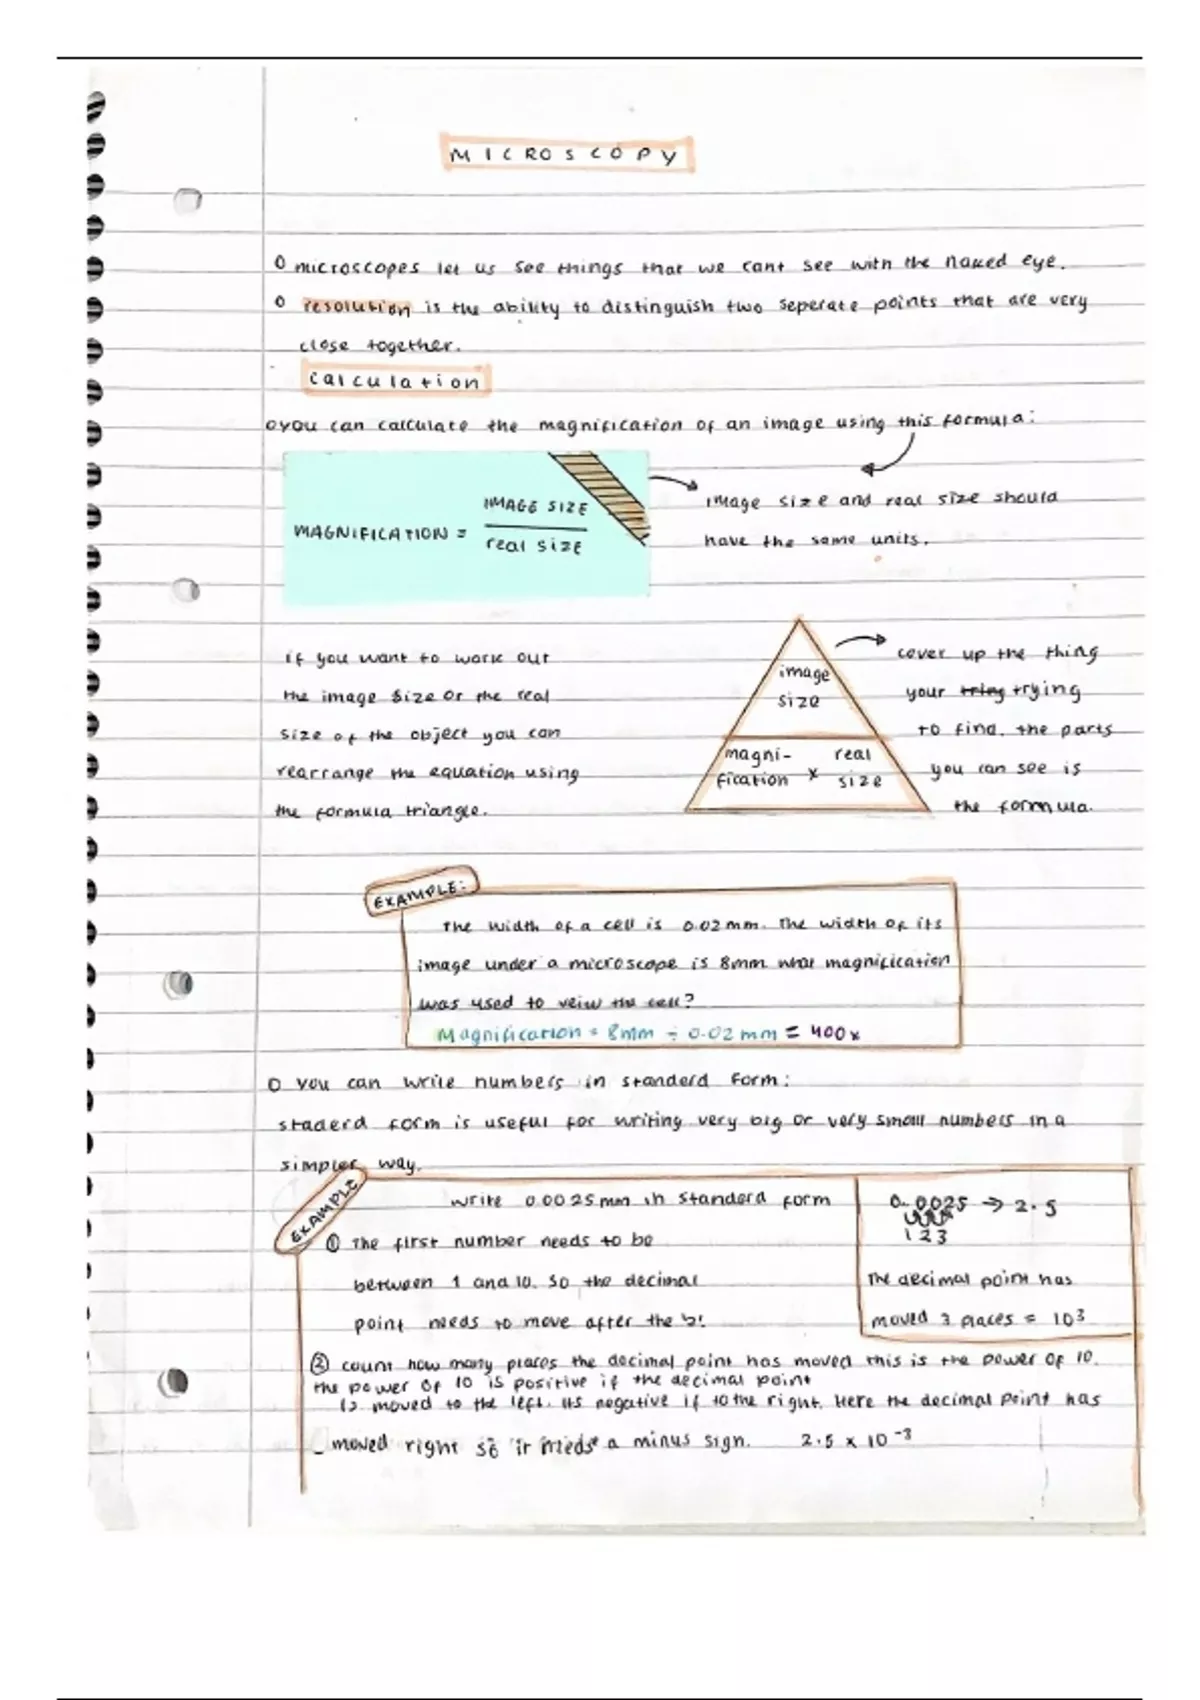 MICROSCOPY
o microscopes let us see things that we cant see with the naked eye.
o resolution is the ability to distinguish two seperate points that are very
close together.
calculation
o you can calculate the magnification of an image using this formula:
MAGNIFICATION = IMAGE SIZE
real size
image size and real size should
have the same units.
if you want to work out
the image size or the real
size of the object you can
rearrange the equation using
the formula triangle.
image
size
magni- real
fication x size
cover up the thing
your trying
to find. the parts
you can see is
the formula.
EXAMPLE:
The width of a cell is 0.02mm. The width of its
image under a microscope is 8mm what magnification
was used to veiw the cell?
Magnification = 8mm ÷ 0.02mm = 400x
o you can write numbers in standerd form:
staderd form is useful for writing very big or very small numbers in a
simpler way.
EXAMPLE
write 0.0025mm in standerd form
① The first number needs to be
between 1 and 10. So the decimal
point needs to move after the '2'.
0.0025 → 2.5
1 2 3
The decimal point has
moved 3 places = 10³
② count how many places the decimal point has moved this is the power of 10.
the power of 10 is positive if the decimal point
is moved to the left. its negative if to the right. Here the decimal point has
moved right so it needs a minus sign. 2.5 x 10⁻³